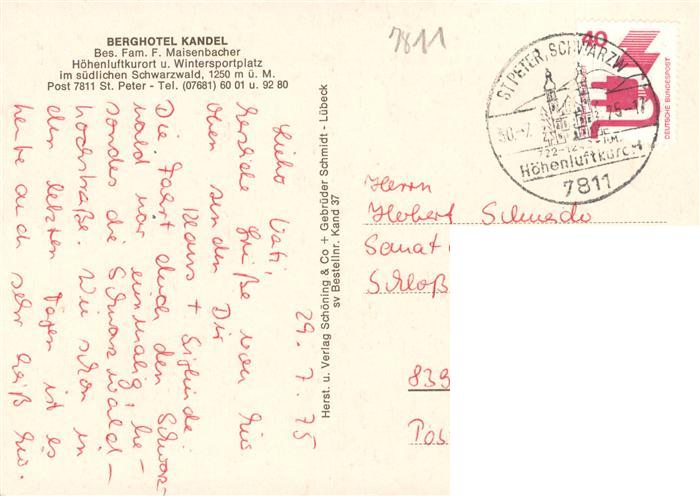 BERGHOTEL KANDEL
Bes. Fam. F. Maisenbacher
Höhenluftkurort u. Wintersportplatz
im südlichen Schwarzwald, 1250 m ü. M.
Post 7811 St. Peter - Tel. (07681) 60 01 u. 92 80
7811
29. 7. 75
Lieber Vati,
herzliche Grüße von hier
oben senden Dir
Klaus + Sieglinde
Die Fahrt durch den Schwarz-
wald war einmalig, be-
sonders die Schwarzwald-
hochstraße. Wie schon in
den letzten Tagen ist es
heute auch sehr heiß hier.
Herst. u. Verlag Schöning & Co + Gebrüder Schmidt - Lübeck
sv Bestellnr. Kand 37
40
DEUTSCHE BUNDESPOST
ST PETER, SCHWARZW
30.-7. 75-17
722-12
Höhenluftkurort
7811
Herrn
Sanat
Schloß
839
Post